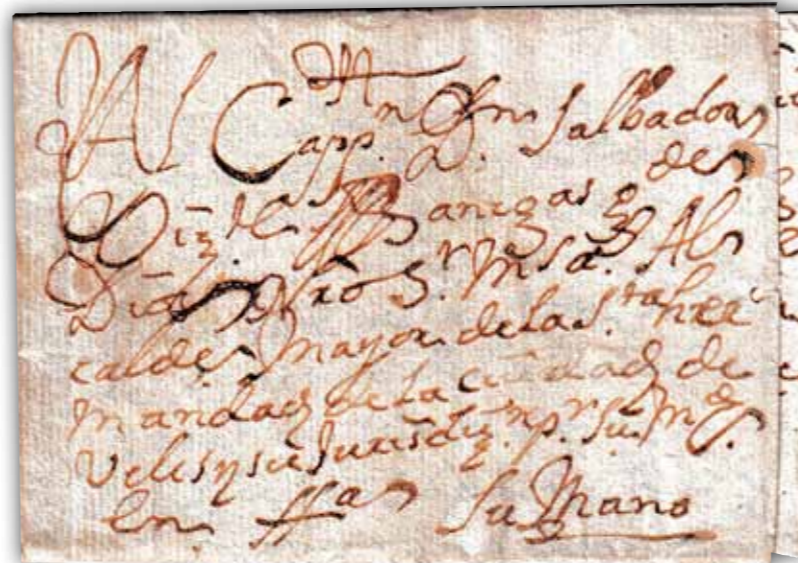 Al Capp.n Dn Salbador
Diz de Banegas g.e de
Dios Nro S.r m.s a.s Al
calde Mayor de la S.ta her
mandad de la ciudad de
Velis y su Jurisdiz.n p.r su M.d
en su Mano